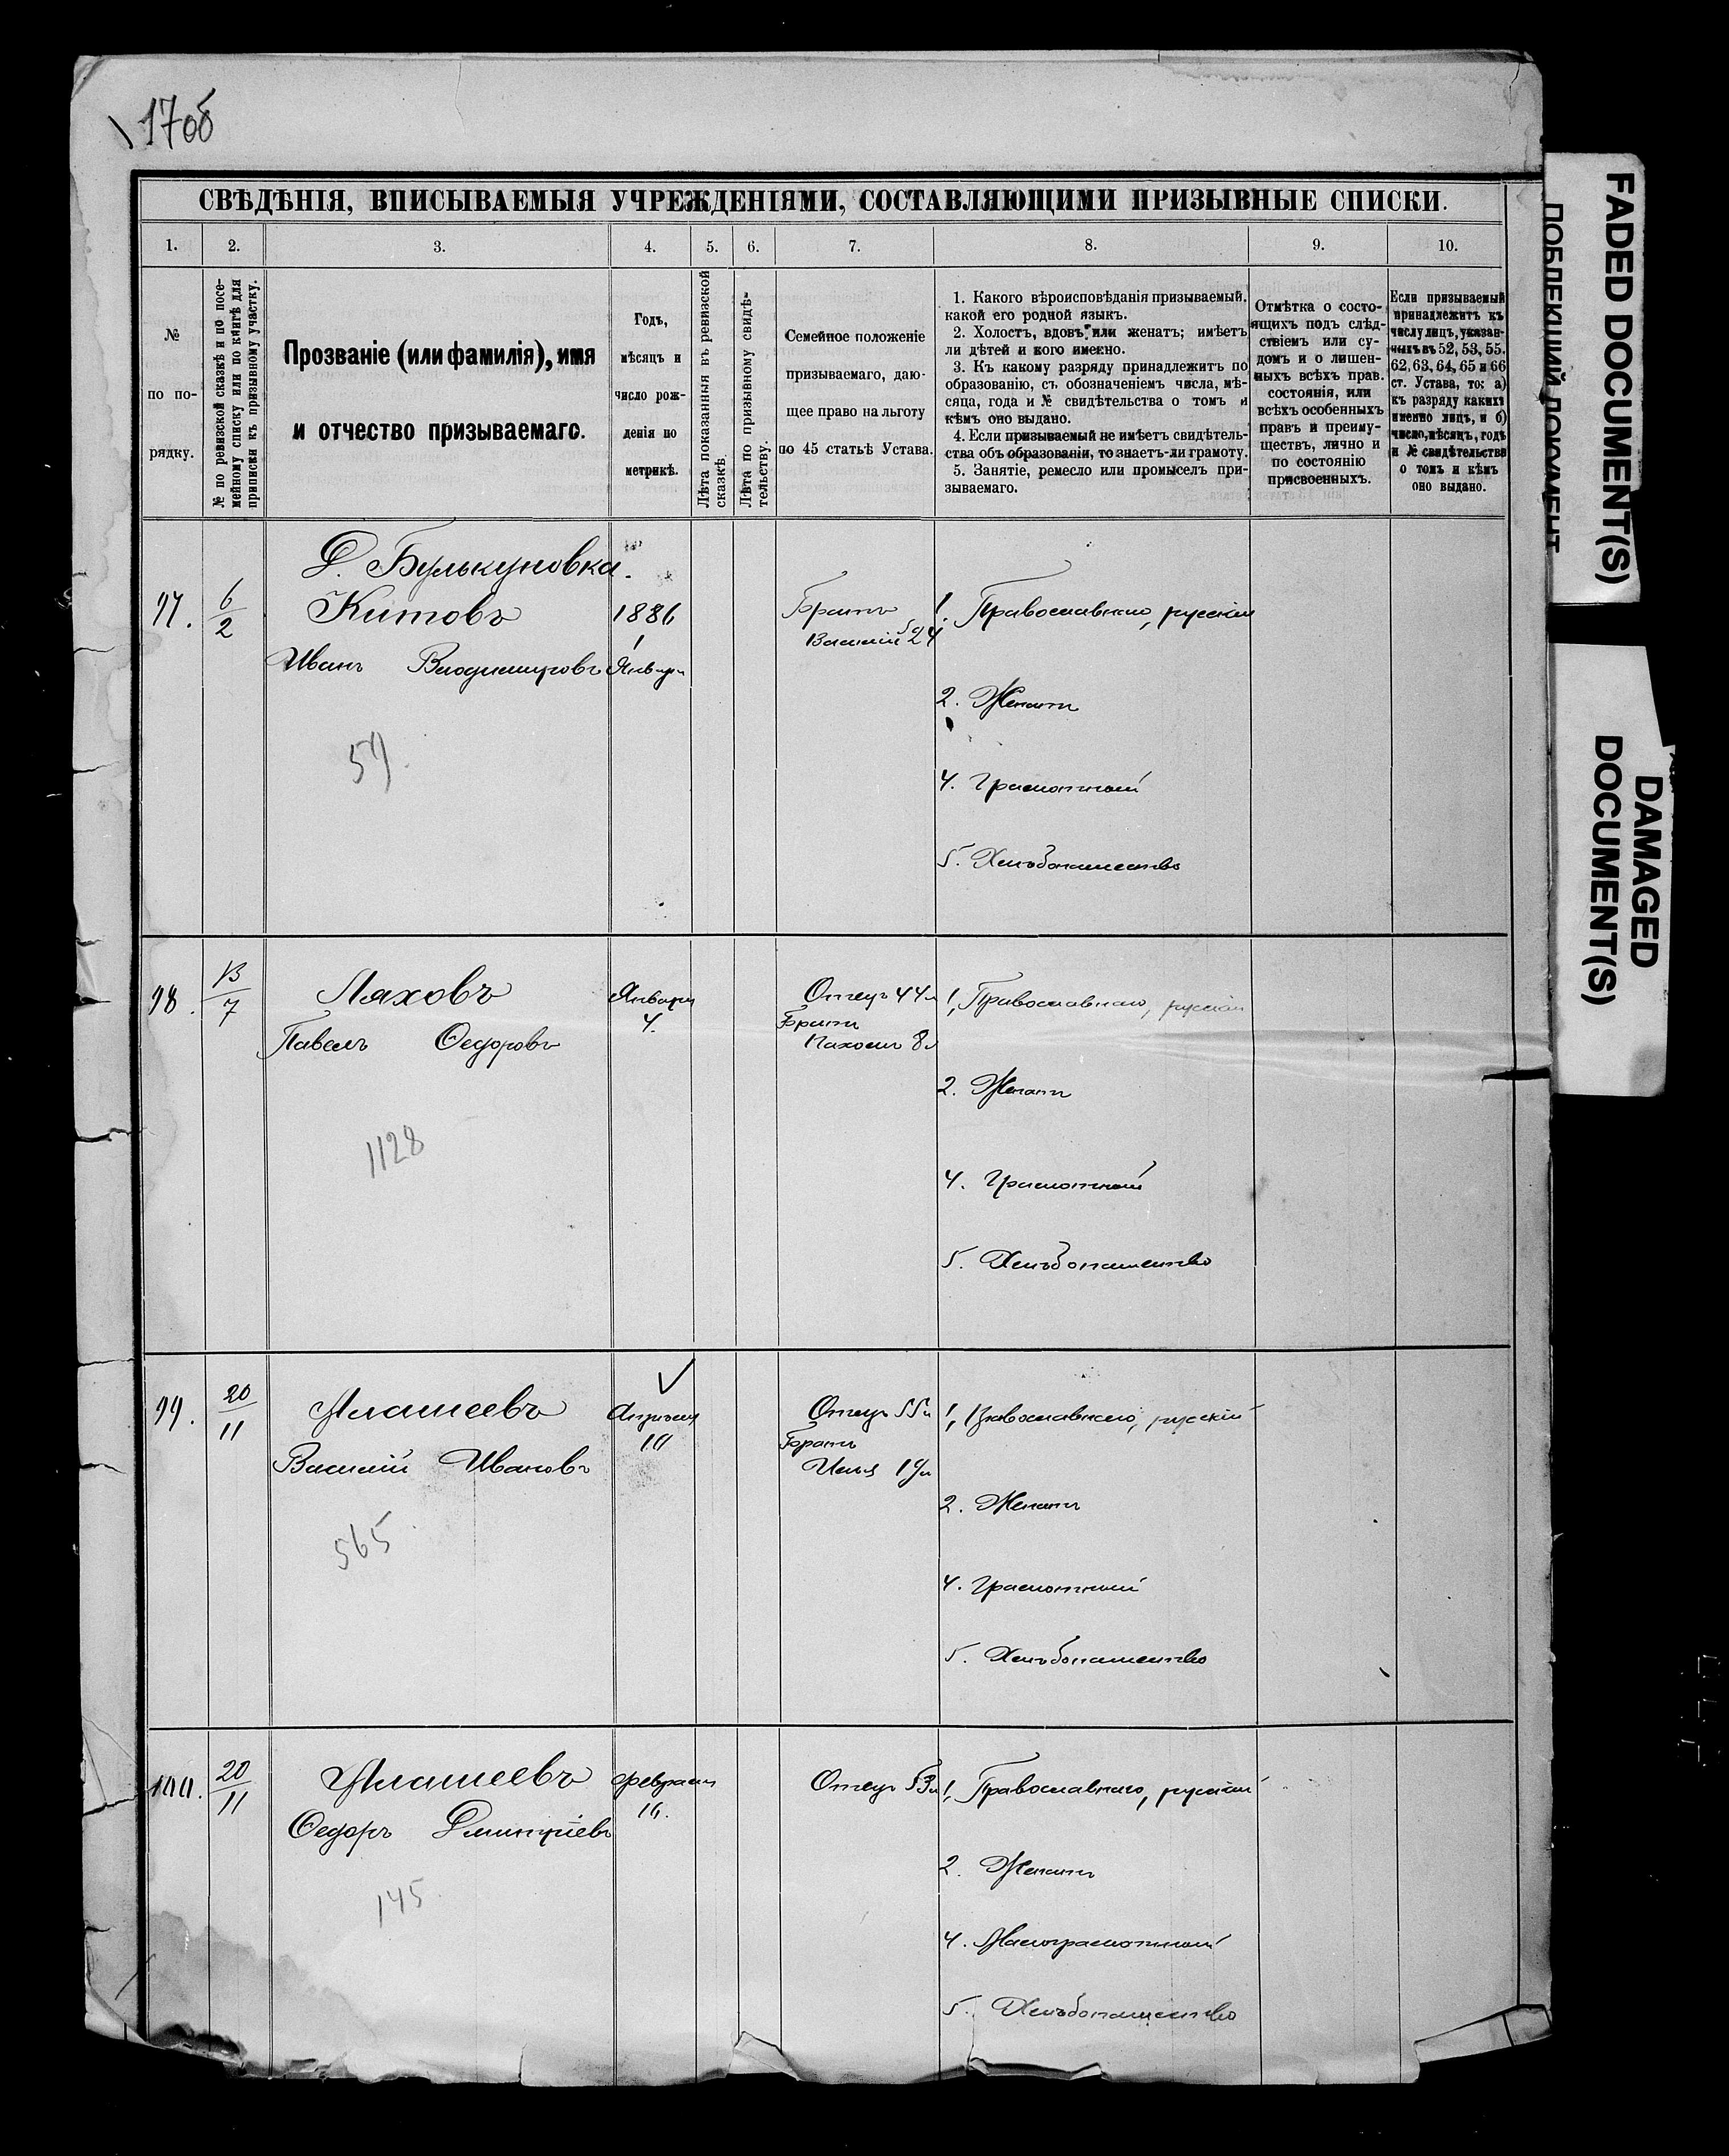 170б
СВѢДѢНІЯ, ВПИСЫВАЕМЫЯ УЧРЕЖДЕНІЯМИ, СОСТАВЛЯЮЩИМИ ПРИЗЫВНЫЕ СПИСКИ.
1. 2. 3. 4. 5. 6. 7. 8. 9. 10.
№
по по-
рядку.
№ по ревизской сказкѣ и по посе-
мейному списку или по книгѣ для
приписки къ призывному участку.
Прозваніе (или фамилія), имя
и отчество призываемаго.
Годъ,
мѣсяцъ и
число рож-
денія по
метрикѣ.
Лѣта показанныя въ ревизской
сказкѣ.
Лѣта по призывному свидѣ-
тельству.
Семейное положеніе
призываемаго, даю-
щее право на льготу
по 45 статьѣ Устава.
1. Какого вѣроисповѣданія призываемый,
какой его родной языкъ.
2. Холостъ, вдовъ или женатъ; имѣетъ
ли дѣтей и кого именно.
3. Къ какому разряду принадлежитъ по
образованію, съ обозначеніемъ числа, мѣ-
сяца, года и № свидѣтельства о томъ и
кѣмъ оно выдано.
4. Если призываемый не имѣетъ свидѣтель-
ства объ образованіи, то знаетъ-ли грамоту.
5. Занятіе, ремесло или промыселъ при-
зываемаго.
Отмѣтка о состо-
ящихъ подъ слѣд-
ствіемъ или су-
домъ и о лишен-
ныхъ всѣхъ прав.
состоянія, или
всѣхъ особенныхъ
правъ и преиму-
ществъ, лично и
по состоянію
присвоенныхъ.
Если призываемый
принадлежитъ къ
числу лицъ, указан-
ныхъ въ 52, 53, 55.
62, 63, 64, 65 и 66
ст. Устава, то: а)
къ разряду какихъ
именно лицъ, и б)
число, мѣсяцъ, годъ
и № свидѣтельства
о томъ и кѣмъ
оно выдано.
Д. Булькуновка.
97. 6/2 Китовъ 1886 Братъ 1. Православнаго, русскій
Иванъ Владимировъ 1 Января Василій 24
2. Женатъ
59.
4. Грамотный
5. Хлѣбопашество
98. 13/7 Ляховъ Января Отецъ 44л 1, Православнаго, русскій
4. Братъ
Павелъ Ѳедоровъ Пахомъ 8л
2. Женатъ
1128
4. Грамотный
5. Хлѣбопашество
99. 20/11 Апрѣля Отецъ 55л 1, Православнаго, русскій
10 Братъ
Василій Ивановъ Илья 19л
2. Женатъ
565
4. Грамотный
5. Хлѣбопашество
100. 20/11 Февраля Отецъ 53л 1, Православнаго, русскій
Ѳедоръ Дмитріевъ
2. Женатъ
145
4. Малограмотный
5. Хлѣбопашество
FADED DOCUMENT(S)
ПОБЛЕКШИЙ ДОКУМЕНТ
DAMAGED
DOCUMENT(S)